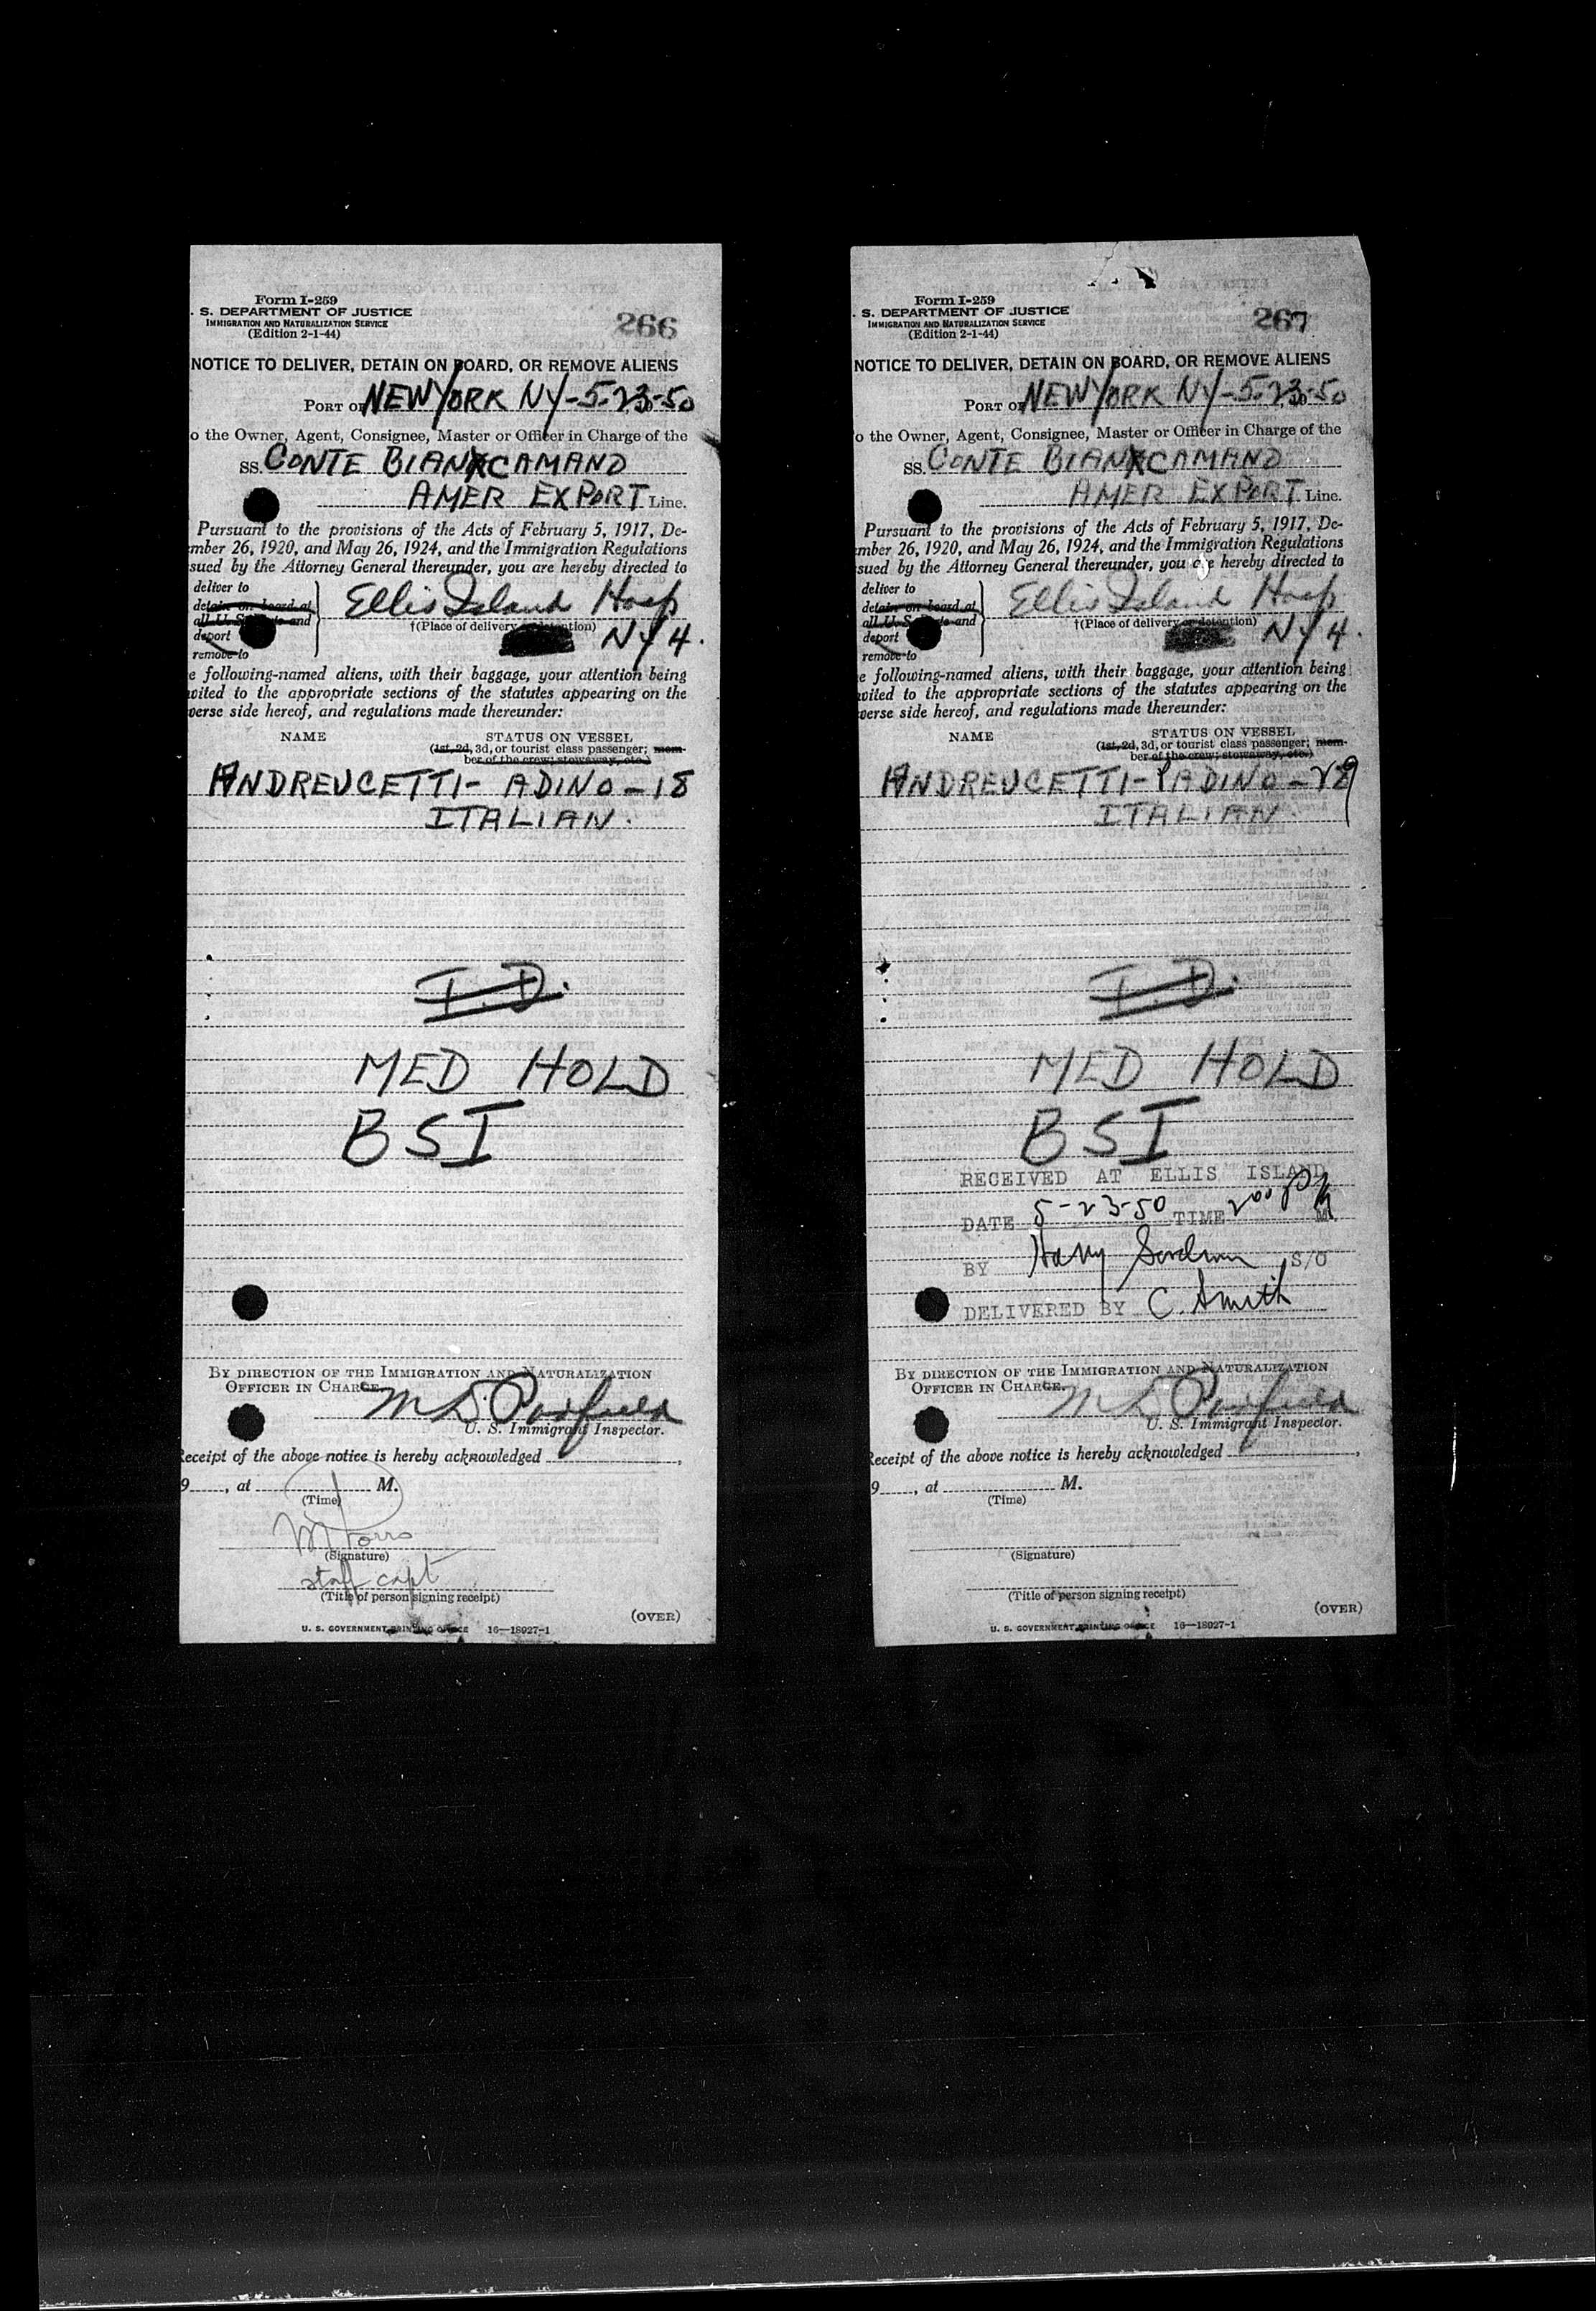 Form I-259
. S. DEPARTMENT OF JUSTICE
IMMIGRATION AND NATURALIZATION SERVICE
(Edition 2-1-44)
266
NOTICE TO DELIVER, DETAIN ON BOARD, OR REMOVE ALIENS
PORT OF NEW YORK NY-5-23-50
o the Owner, Agent, Consignee, Master or Officer in Charge of the
SS. CONTE BIANCAMANO
AMER EXPORT Line.
Pursuant to the provisions of the Acts of February 5, 1917, De-
mber 26, 1920, and May 26, 1924, and the Immigration Regulations
sued by the Attorney General thereunder, you are hereby directed to
deliver to
detain on board at
all U. S. and
deport
remove to
Ellis Island Hosp
†(Place of delivery or detention)
NY 4.
e following-named aliens, with their baggage, your attention being
vited to the appropriate sections of the statutes appearing on the
verse side hereof, and regulations made thereunder:
NAME STATUS ON VESSEL
(1st, 2d, 3d, or tourist class passenger; mem-
ber of the crew; stowaway, etc.)
ANDREUCETTI- ADINO-18
ITALIAN.
I.D.
MED HOLD
BSI
BY DIRECTION OF THE IMMIGRATION AND NATURALIZATION
OFFICER IN CHARGE.
U. S. Immigrant Inspector.
Receipt of the above notice is hereby acknowledged ,
9 , at M.
(Time)
(Signature)
staff capt
(Title of person signing receipt)
(OVER)
U. S. GOVERNMENT PRINTING OFFICE 16—18027-1
Form I-259
. S. DEPARTMENT OF JUSTICE
IMMIGRATION AND NATURALIZATION SERVICE
(Edition 2-1-44)
267
NOTICE TO DELIVER, DETAIN ON BOARD, OR REMOVE ALIENS
PORT OF NEW YORK NY-5-23-50
o the Owner, Agent, Consignee, Master or Officer in Charge of the
SS. CONTE BIANCAMANO
AMER EXPORT Line.
Pursuant to the provisions of the Acts of February 5, 1917, De-
mber 26, 1920, and May 26, 1924, and the Immigration Regulations
sued by the Attorney General thereunder, you are hereby directed to
deliver to
detain on board at
all U. S. and
deport
remove to
Ellis Island Hosp
†(Place of delivery or detention)
NY 4.
e following-named aliens, with their baggage, your attention being
vited to the appropriate sections of the statutes appearing on the
verse side hereof, and regulations made thereunder:
NAME STATUS ON VESSEL
(1st, 2d, 3d, or tourist class passenger; mem-
ber of the crew; stowaway, etc.)
ANDREUCETTI- ADINO
ITALIAN.
I.D.
MED HOLD
BSI
RECEIVED AT ELLIS ISLAND
DATE 5-23-50 TIME 200 P M
BY Harry S/O
DELIVERED BY C. Smith
BY DIRECTION OF THE IMMIGRATION AND NATURALIZATION
OFFICER IN CHARGE.
U. S. Immigrant Inspector.
Receipt of the above notice is hereby acknowledged ,
9 , at M.
(Time)
(Signature)
(Title of person signing receipt)
(OVER)
U. S. GOVERNMENT PRINTING OFFICE 16—18027-1